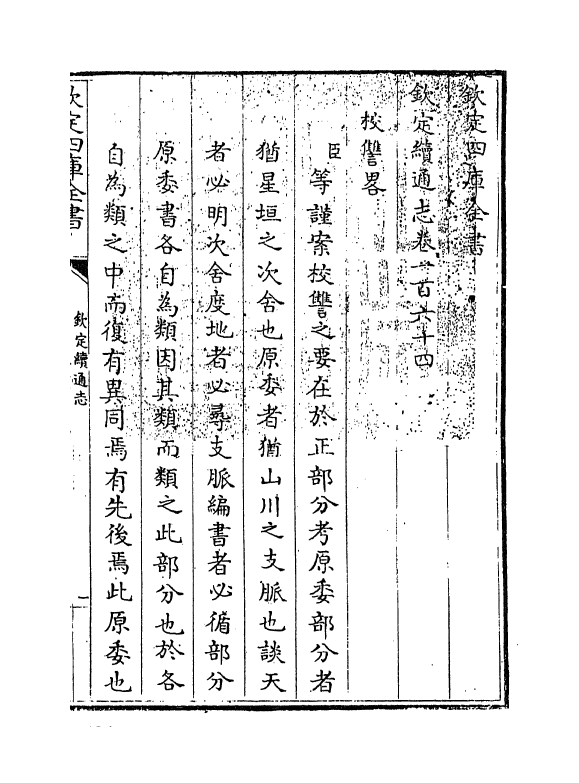 欽定四庫全書
欽定續通志卷一百六十四
校讐畧
臣等謹案校讐之要在於正部分考原委部分者
猶星垣之次舍也原委者猶山川之支脈也談天
者必明次舍度地者必尋支脈編書者必循部分
原委書各自為類因其類而類之此部分也於各
自為類之中而復有異同焉有先後焉此原委也
欽定四庫全書
欽定續通志
一